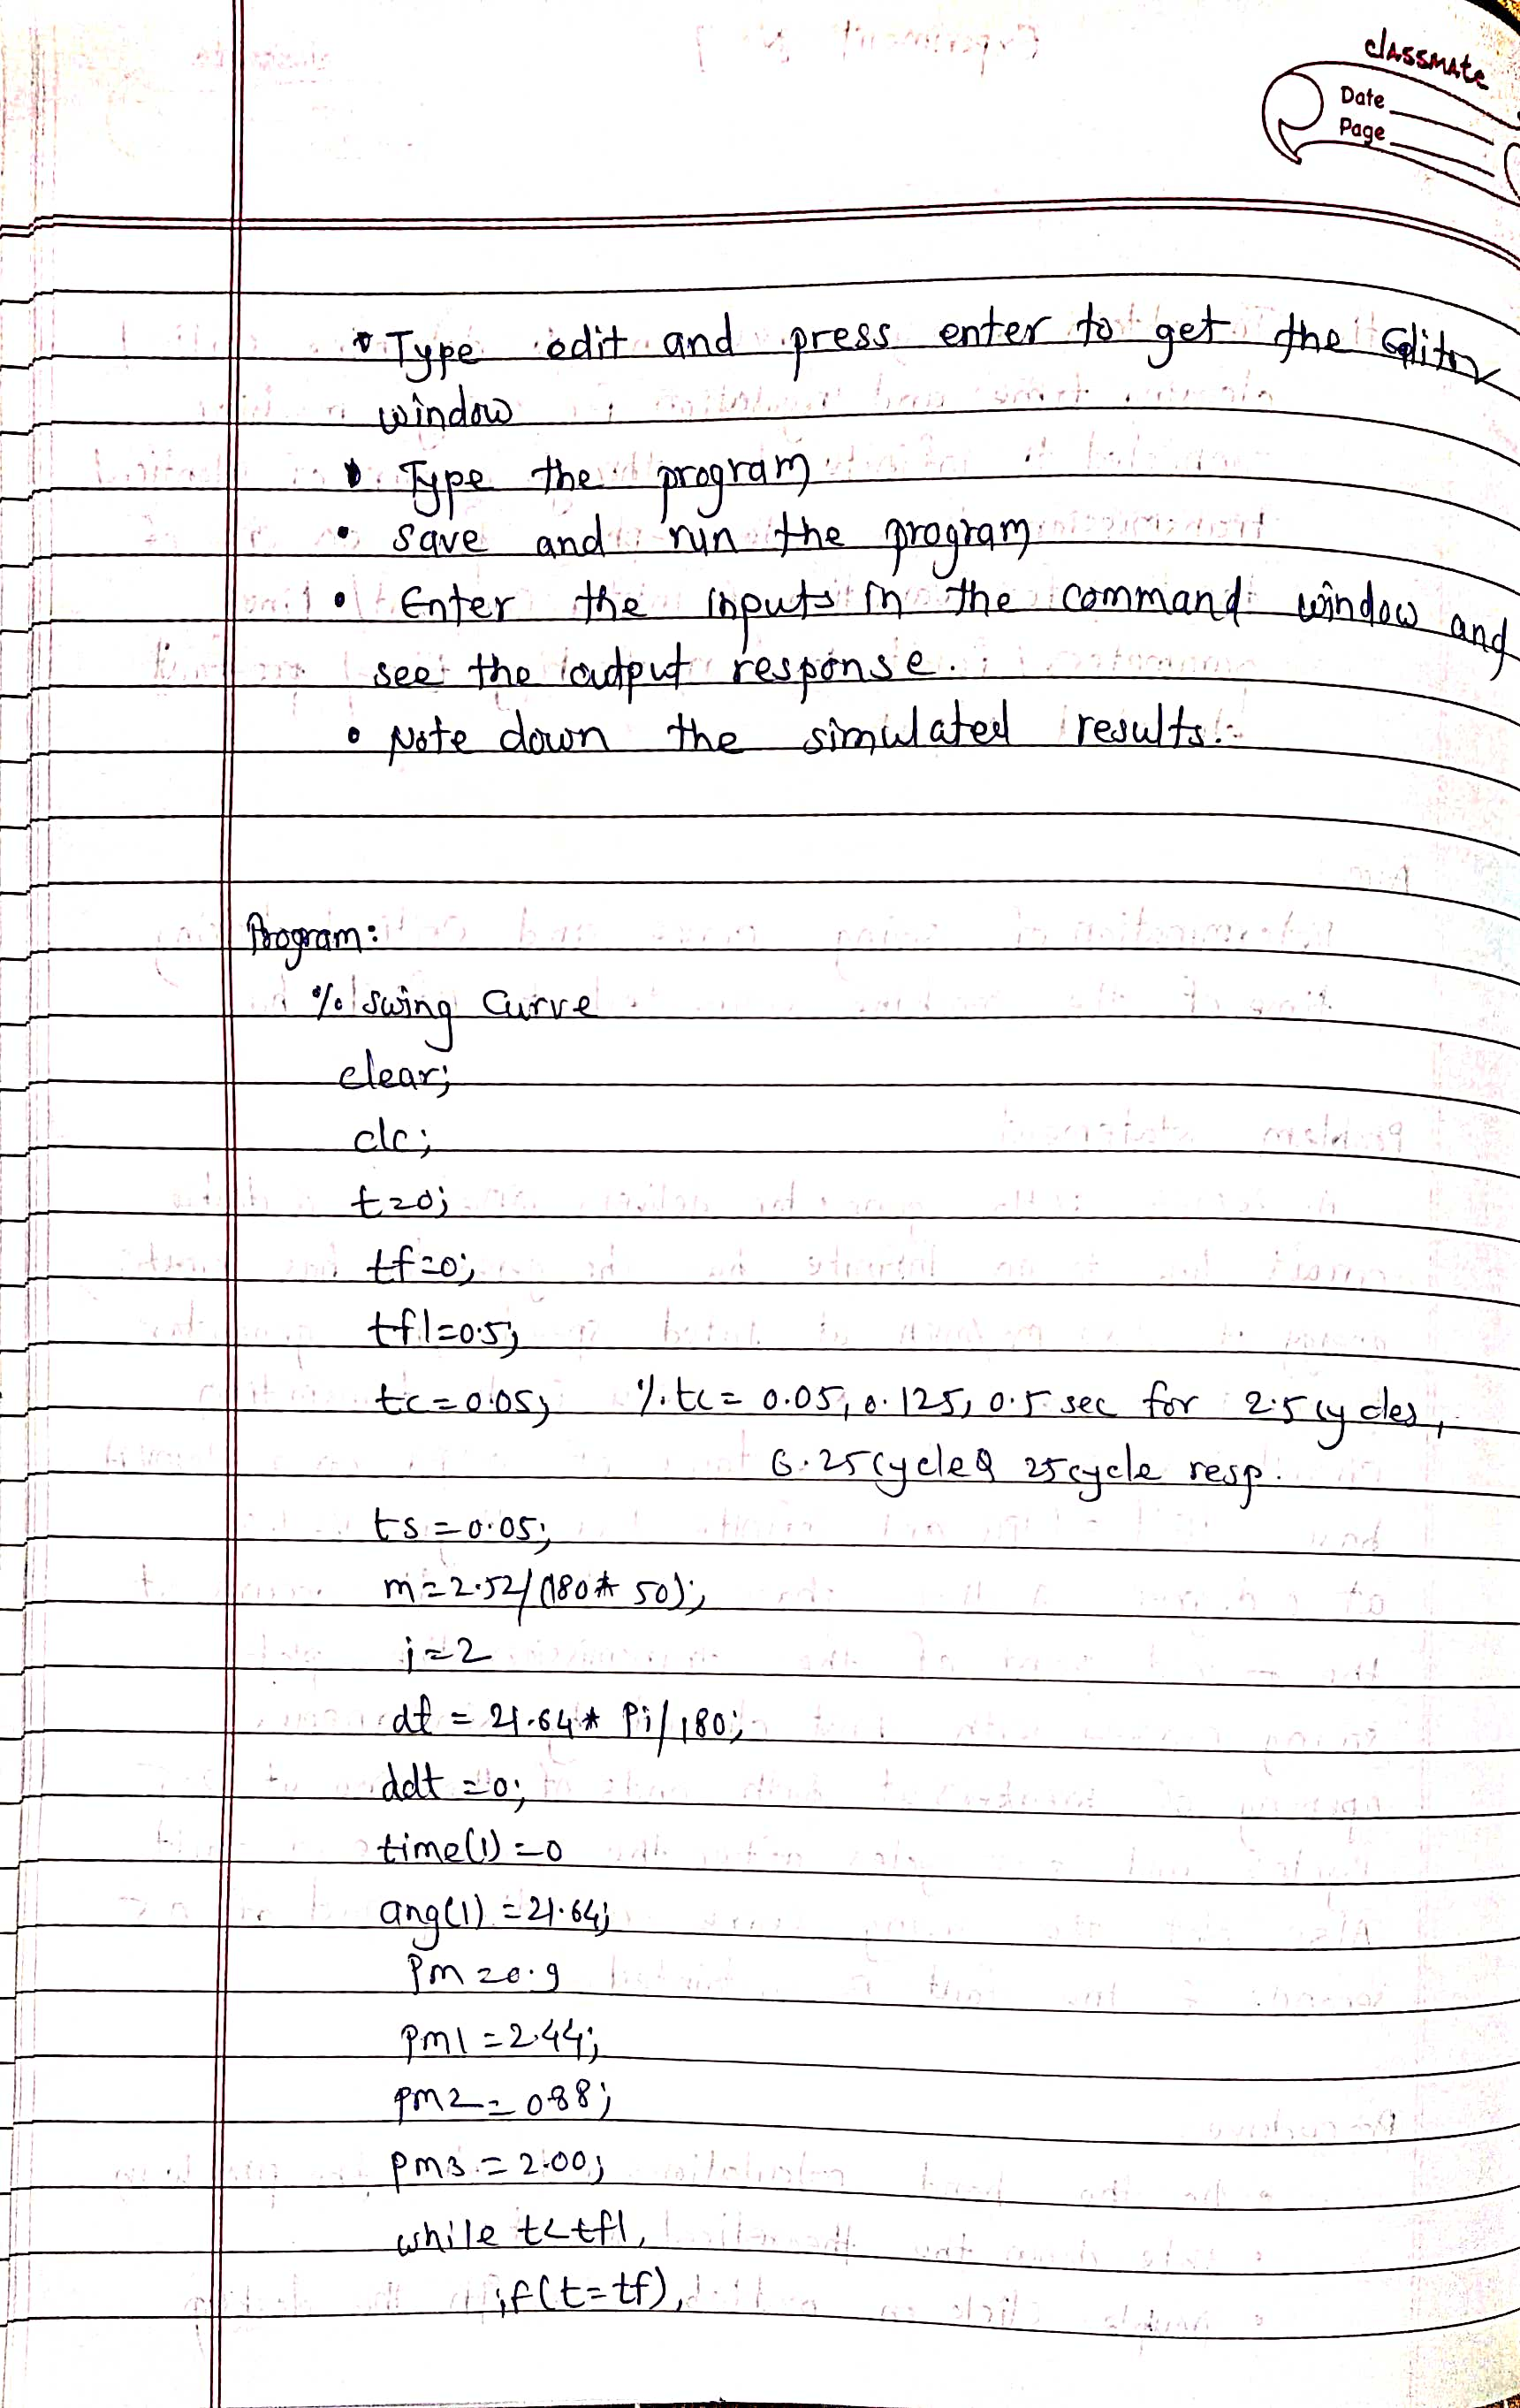 classmate
Date
Page
• Type edit and press enter to get the editor
window
• Type the program
• Save and run the program
• Enter the inputs in the command window and
see the output response.
• Note down the simulated results.
Program:
% Swing Curve
clear;
clc;
t=0;
tf=0;
tf1=0.5;
tc=0.05; %tc= 0.05, 0.125, 0.5 sec for 2.5 cycles,
6.25 cycle & 25 cycle resp.
ts=0.05;
m=2.52/(180*50);
i=2
dt = 21.64* Pi/180;
ddt =0;
time(1)=0
ang(1)=21.64;
Pm=0.9
Pm1=2.44;
pm2=088;
pm3=2.00;
while t<tf1,
if(t=tf),